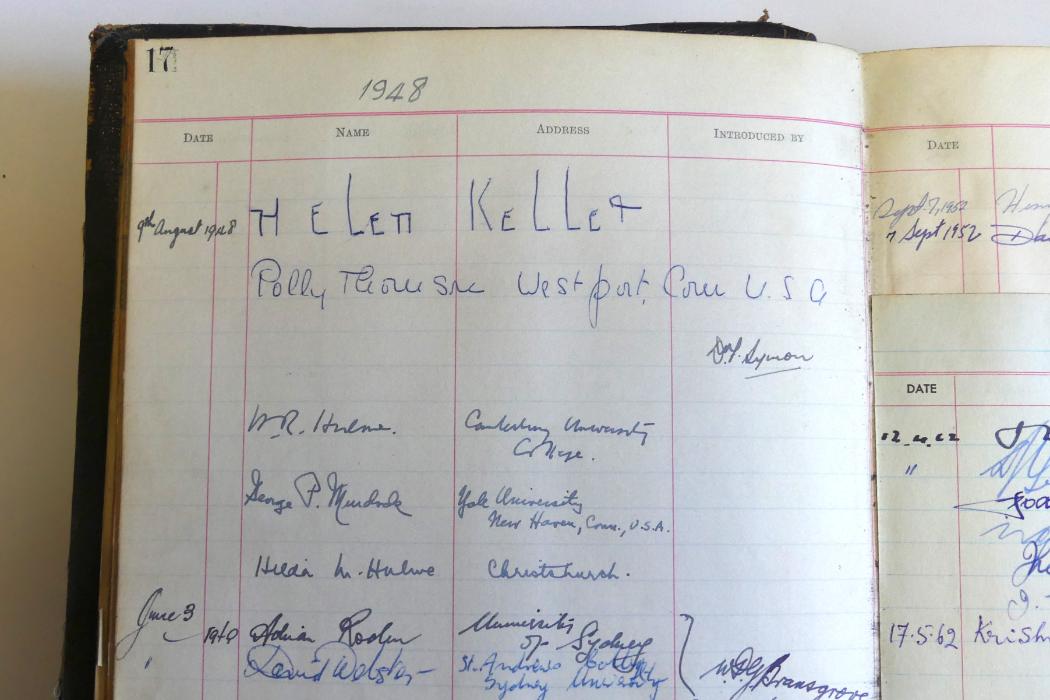 17
1948
DATE NAME ADDRESS INTRODUCED BY
9th August 1948 HELEN KELLER
Polly Thomson Westport, Conn U.S.A
D. Symon
W.R. Hulme. Canterbury University
College.
George P. Murdock Yale University
New Haven, Conn., U.S.A.
Hilda M. Hulme Christchurch.
June 3
Adrian University
of Sydney
" David Webster St. Andrews College
Sydney University
DATE
Sept. 7, 1952
7 Sept 1952
DATE
12.4.62
"
17.5.62 Krish